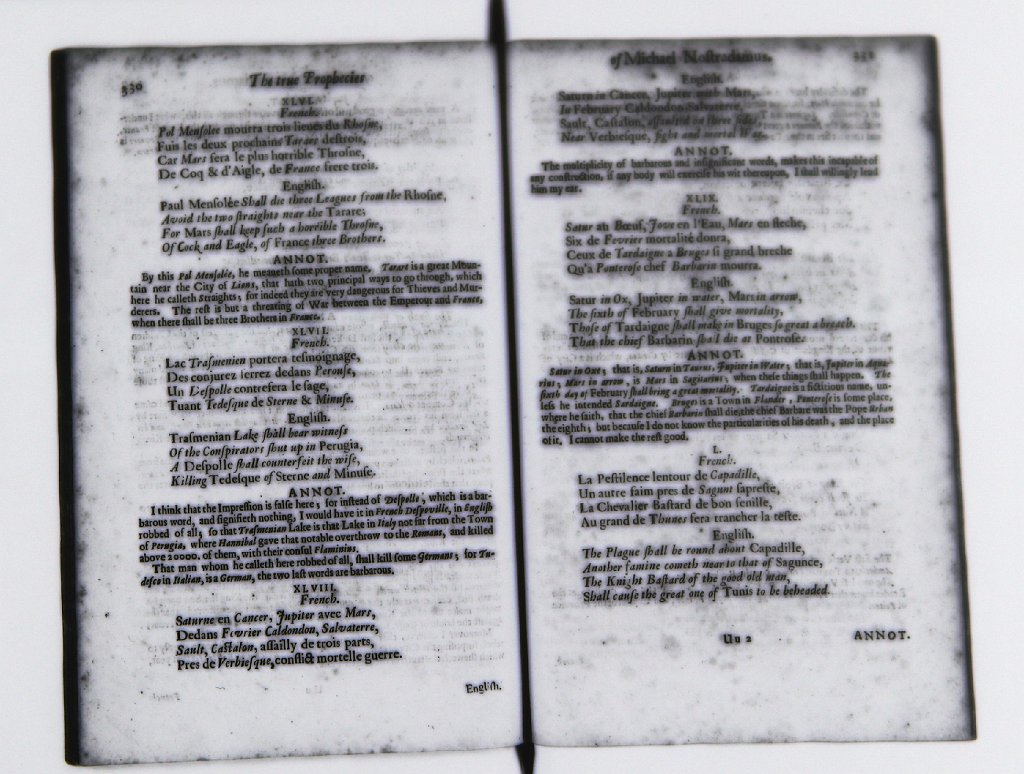 330
The true Prophecies
XLVI.
French.
Pol Mensolee mourra trois lieues du Rhosne,
Fuis les deux prochains Tarare destrois,
Car Mars fera le plus horrible Throsne,
De Coq & d'Aigle, de France frere trois.
English.
Paul Mensolée Shall die three Leagues from the Rhosne,
Avoid the two straights near the Tarare;
For Mars shall keep such a horrible Throsne,
Of Cock and Eagle, of France three Brothers.
ANNOT.
By this Pol Mensolée, he meaneth some proper name, Tarare is a great Moun-
tain near the City of Lions, that hath two principal ways to go through, which
here he calleth Straights; for indeed they are very dangerous for Thieves and Mur-
derers. The rest is but a threating of War between the Emperour and France,
when there shall be three Brothers in France.
XLVII.
French.
Lac Trasmenien portera tesmoignage,
Des conjurez serrez dedans Perouse,
Un Despolle contrefera le sage,
Tuant Tedesque de Sterne & Minuse.
English.
Trasmenian Lake shall bear witness
Of the Conspirators shut up in Perugia,
A Despolle shall counterfeit the wise,
Killing Tedesque of Sterne and Minuse.
ANNOT.
I think that the Impression is false here; for instead of Despolle, which is a bar-
barous word, and signifieth nothing, I would have it in French Despoville, in English
robbed of all; so that Trasmenian Lake is that Lake in Italy not far from the Town
of Perugia, where Hannibal gave that notable overthrow to the Romans, and killed
above 20000. of them, with their consul Flaminius.
That man whom he calleth here robbed of all, shall kill some Germans; for Tu-
desco in Italian, is a German, the two last words are barbarous.
XLVIII.
French.
Saturne en Cancer, Jupiter avec Mars,
Dedans Fevrier Caldondon, Salvaterre,
Sault, Castalon, assailly de trois parts,
Pres de Verbiesque, conflict mortelle guerre.
English.
of Michael Nostradamus.
331
English.
Saturn in Cancer, Jupiter with Mars,
In February Caldondon Salvaterre,
Sault, Castalon, assaulted on three sides,
Near Verbiesque, fight and mortal War.
ANNOT.
The multiplicity of barbarous and insignificant words, makes this incapable of
any construction, if any body will exercise his wit thereupon, I shall willingly lend
him my ear.
XLIX.
French.
Satur au Bœuf, Jove en l'Eau, Mars en fleche,
Six de Fevrier mortalité donra,
Ceux de Tardaigne a Bruges si grand breche
Qu'a Ponterose chef Barbarin mourra.
English.
Satur in Ox, Jupiter in water, Mars in arrow,
The sixth of February shall give mortality,
Those of Tardaigne shall make in Bruges so great a breach.
That the chief Barbarin shall die at Pontrose.
ANNOT.
Satur in Oxe; that is, Saturn in Taurus, Jupiter in Water; that is, Jupiter in Aqua-
rius, Mars in arrow, is Mars in Sagitarius; when these things shall happen. The
sixth day of February shall bring a great mortality. Tardaigne is a fictitious name, un-
less he intended Sardaigne. Bruges is a Town in Flander, Ponterose is some place,
where he saith, that the chief Barbarin shall die, the chief Barbare was the Pope Urban
the eighth; but because I do not know the particularities of his death, and the place
of it, I cannot make the rest good.
L.
French.
La Pestilence lentour de Capadille,
Un autre faim pres de Sagunt sapreste,
La Chevalier Bastard de bon senille,
Au grand de Thunes fera trancher la teste.
English.
The Plague shall be round about Capadille,
Another famine cometh near to that of Sagunce,
The Knight Bastard of the good old man,
Shall cause the great one of Tunis to be beheaded.
Uu 2
ANNOT.